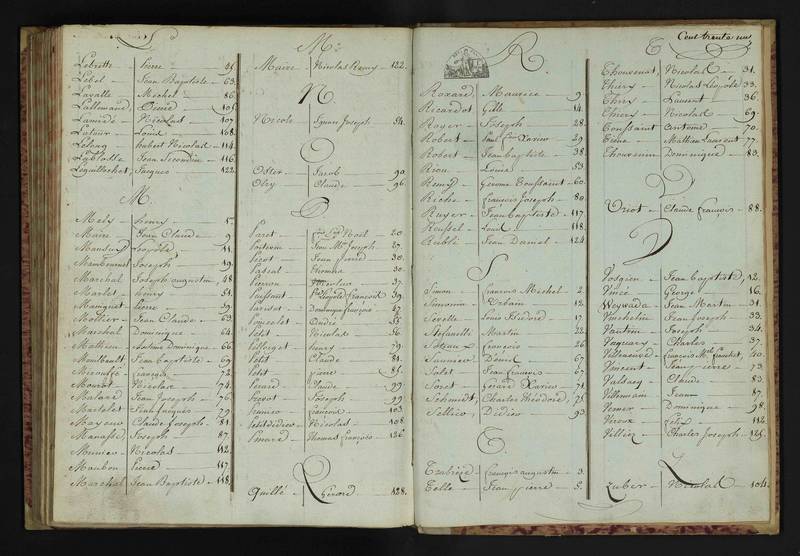 L
Lebrette Pierre 45
Lebel Jean Baptiste 63
Lavalle Michel 86
Lallemand, Désiré 105
Lamidé Nicolas 107
Latour Louis 108
Lelong hubert Nicolas 114
Jean Secondin 116
Jacques 122
M.
Mely henry 5
Maire Jean Claude 9
Mansuy Léopold 11
Joseph 19
Marchal Joseph augustin 48
Marlet henry 51
Mangeot Pierre 59
Mothier Jean Claude 63
Marchal Dominique 64
Mathieu Antoine Dominique 66
Montbault Jean Baptiste 69
Micouffe françois 72
Mourot Nicolas 74
Malard Jean Joseph 76
Martelet Jean Jacques 79
Mayeur Claude Joseph 81
Manasse Joseph 87
Munier Nicolas 112
Maubon Pierre 117
Marchal Jean Baptiste 118
M.
Maire Nicolas Remy 122
N.
Nicole Ignace Joseph 54
O
Oster Jacob 90
Olry Claude 96
P
Paret Noël 20
Joseph 27
Picot Jean Pierre 30
Passal Thomas 30
Pierron Nicolas 37
Puissant Léopold François 39
Parisot Dominique françois 47
Poncelot André 55
Petit Nicolas 56
henry 79
Petit Claude 81
Petit pierre 85
Picard Claude 99
Prevot Joseph 99
françois 103
Petitdidier Nicolas 108
Pinard Thomas François 126
Q
Quillé Gérard 128
Cent trente un
R
Roxard Maurice 9
Ricardot Gille 14
Royer Joseph 28
Robert Paul Xavier 29
Robert Jean baptiste 38
Louis 53
Remy Gerome Toussaint 60
Riche françois Joseph 80
Ruyer Jean baptiste 117
Roussel Louis 118
Rublé Jean Daniel 124
S
Simon françois Michel 2
Simonin Urbain 12
Sevelle Louis Isidore 17
Stefanille Martin 22
françois 26
Saunier Daniel 67
Salet Jean François 67
Soret Gérard Xavier 71
Schmidt, Charles Théodore 75
Sellier Didier 93
T
françois augustin 3
Telle Jean pierre 5
T
Thouvenot, Nicolas 31
Thiery Nicolas Léopold 33
Thiry Laurent 36
Thiery Nicolas 69
Toussaint antoine 70
Mathieu Laurent 77
Thouvenin Dominique 83
V
Vriot Claude François 88
V
Vosgien Jean baptiste, 12
Vincé George 16
Weywada Jean Martin 31
Jean Joseph 33
Vautrin Joseph 34
Charles 37
Villaume françois 40
Vincent Jean pierre 73
Claude 83
Villemain Jean 87
Dominique 98
Viroux Felix 112
Villiez Charles Joseph 125
Z
Zuber Nicolas 104